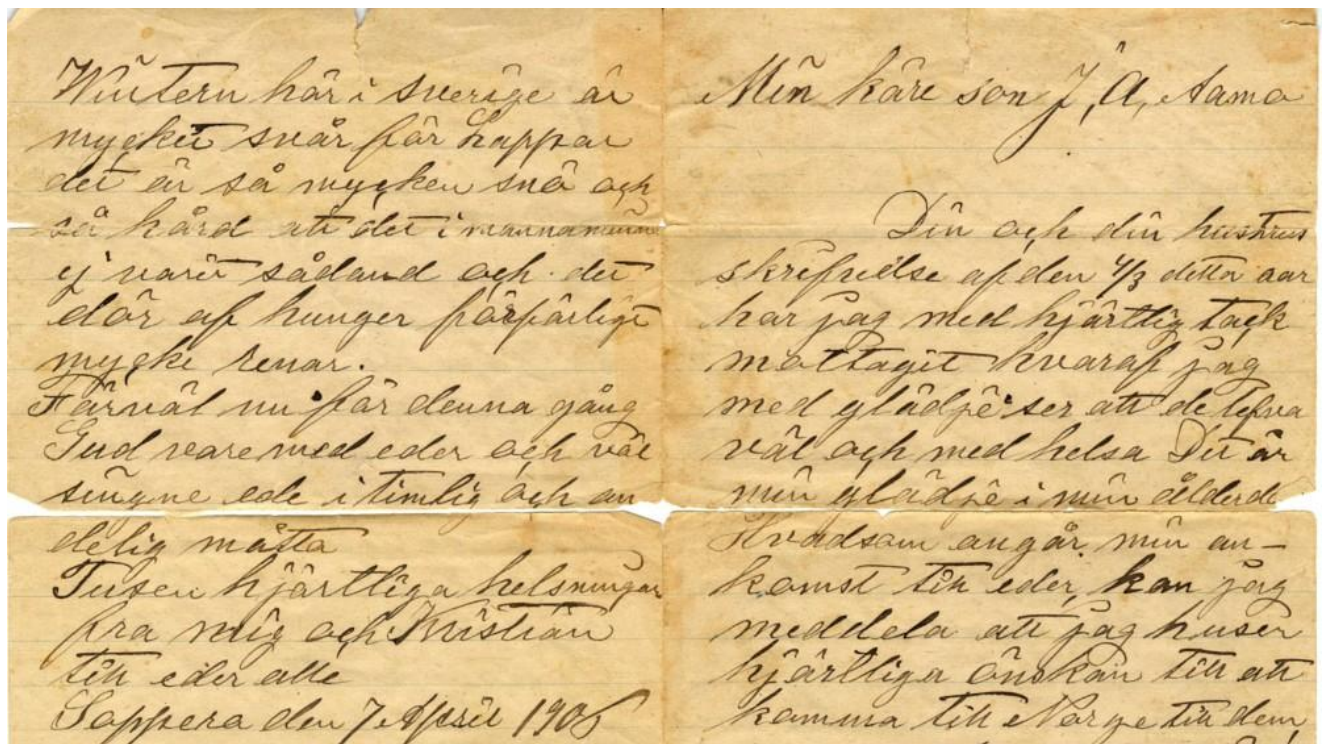 Wintern här i sverige är
mycket svår för Lappar
det är så mycken snö och
så hård att det i mannaminne
ej varit sådand och det
dör af hunger förfärligt
mycke renar.
Färväl nu för denna gång
Gud vare med eder och väl
singne ede i timlig och an
delig måtta
Tusen hjärtliga helsningar
fra mig och Kristian
till eder alle
Soppero den 7 April 1906
Min käre son J, A, Aamo
Din och din hustrus
skrifvelse af den 4/3 detta aar
har jag med hjärtlig tack
mottagit hvaraf jag
med glädje ser att de lefva
väl och med helsa Det är
min glädje i min ålderdo
Hvadsom angår min an-
komst till eder, kan jag
meddela att jag huser
hjärtliga önskan till att
komma till Norge till dem,